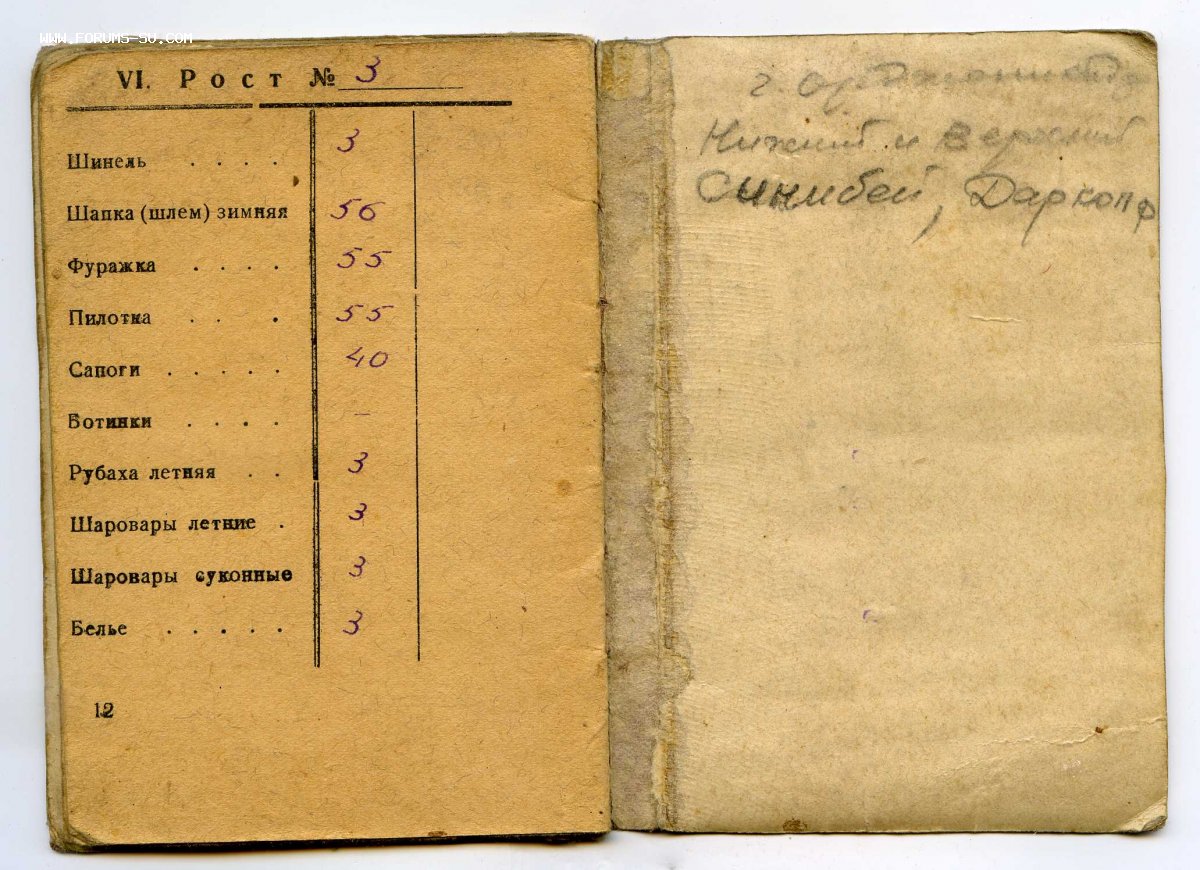 WWW.FORUMS-SU.COM
VI. Рост № 3
Шинель . . . . 3
Шапка (шлем) зимняя 56
Фуражка . . . . 55
Пилотка . . . 55
Сапоги . . . . . 40
Ботинки . . . . –
Рубаха летняя . . 3
Шаровары летние . 3
Шаровары суконные 3
Белье . . . . . 3
12
г. Орджоникидзе
Нижний и Верхний
Синибей, Даркоп